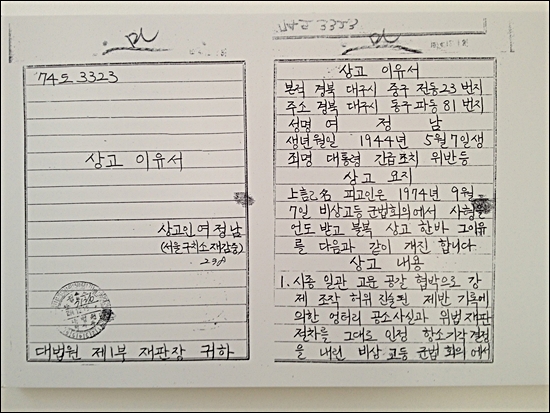 74도 3323
상고 이유서
상고인 여정남
(서울구치소 재감중)
대법원 제1부 재판장 귀하
74도 3323
상고 이유서
본적 경북 대구시 중구 전동 23 번지
주소 경북 대구시 동구 파동 81 번지
성명 여 정 남
생년월일 1944年 5월 7일생
죄명 대통령 긴급조치 위반등
상고 요지
上記名 피고인은 1974년 9월
7일, 비상고등 군법회의에서 사형을
언도 받고 불복 상고 한바 그이유
를 다음과 같이 개진 합니다
상고 내용
1. 시종 일관 고문 공갈 협박으로 강
제 조작 허위 진술된 제반 기록에
의한 엉터리 공소사실과 위법 재판
절차를 그대로 인정 항소기각 결정
을 내린 비상 고등 군법 회의에서